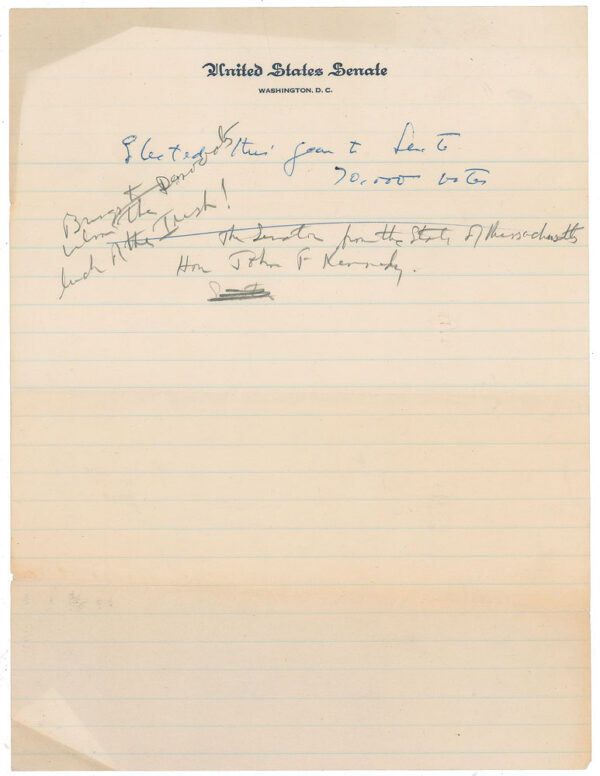 United States Senate
WASHINGTON, D. C.
Elected this year to Senate
70,000 votes
Brings to
the
luck of the Irish!
the Senator from the State of Massachusetts
Hon John F Kennedy.